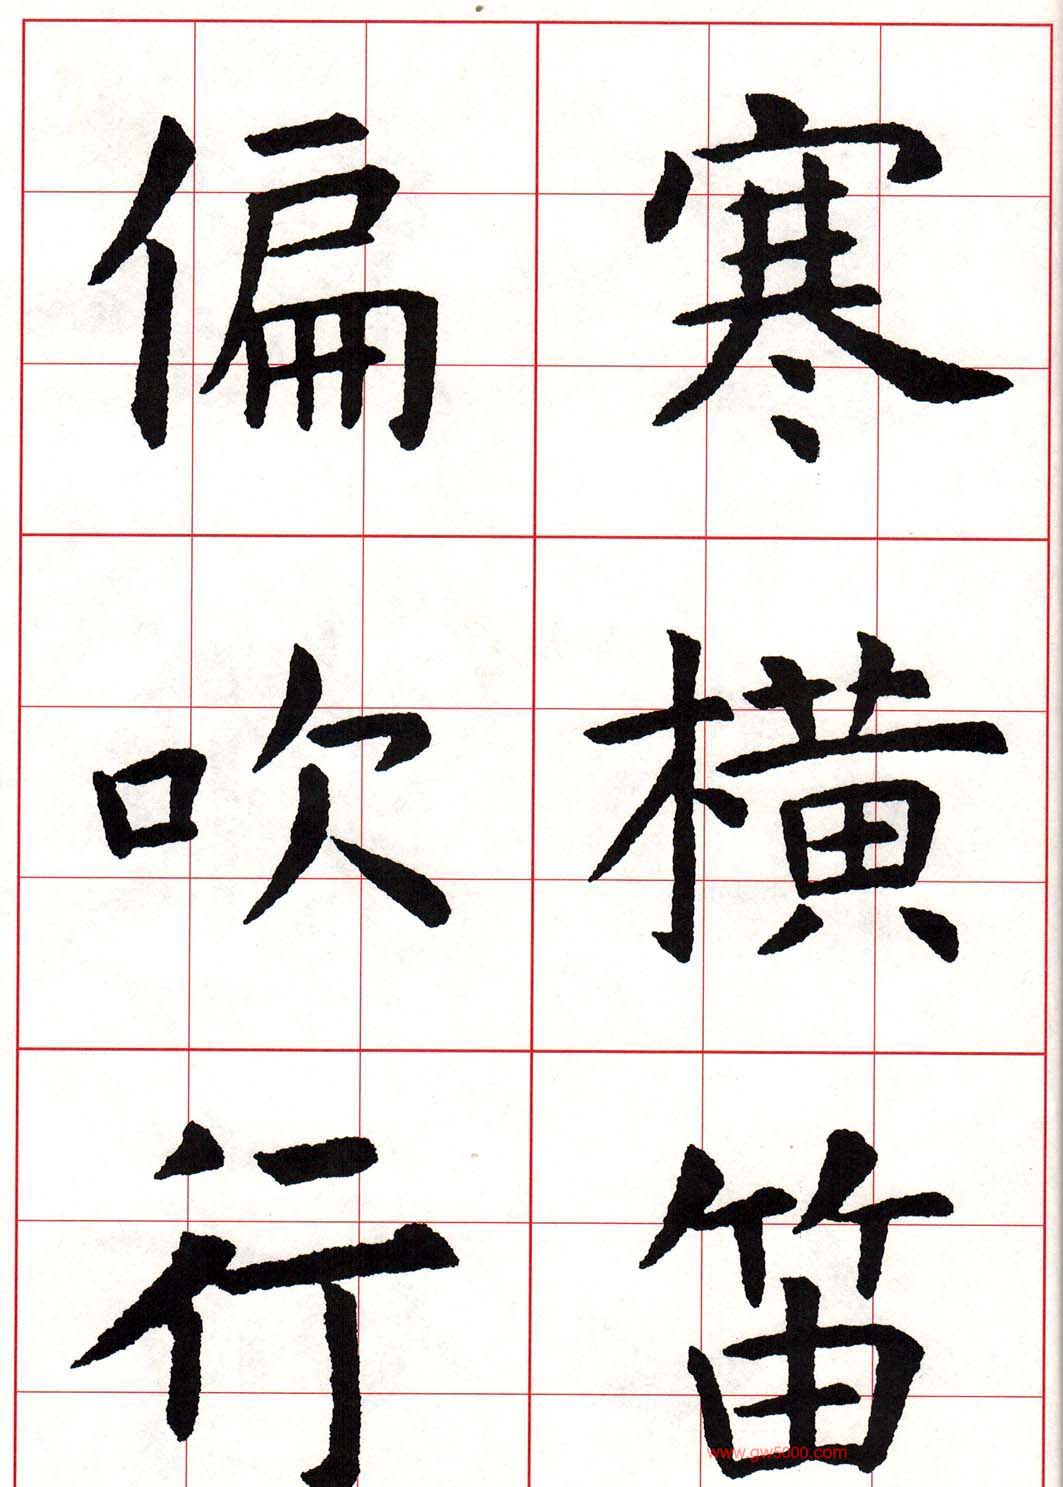 寒横笛
偏吹行
www.gw5000.com